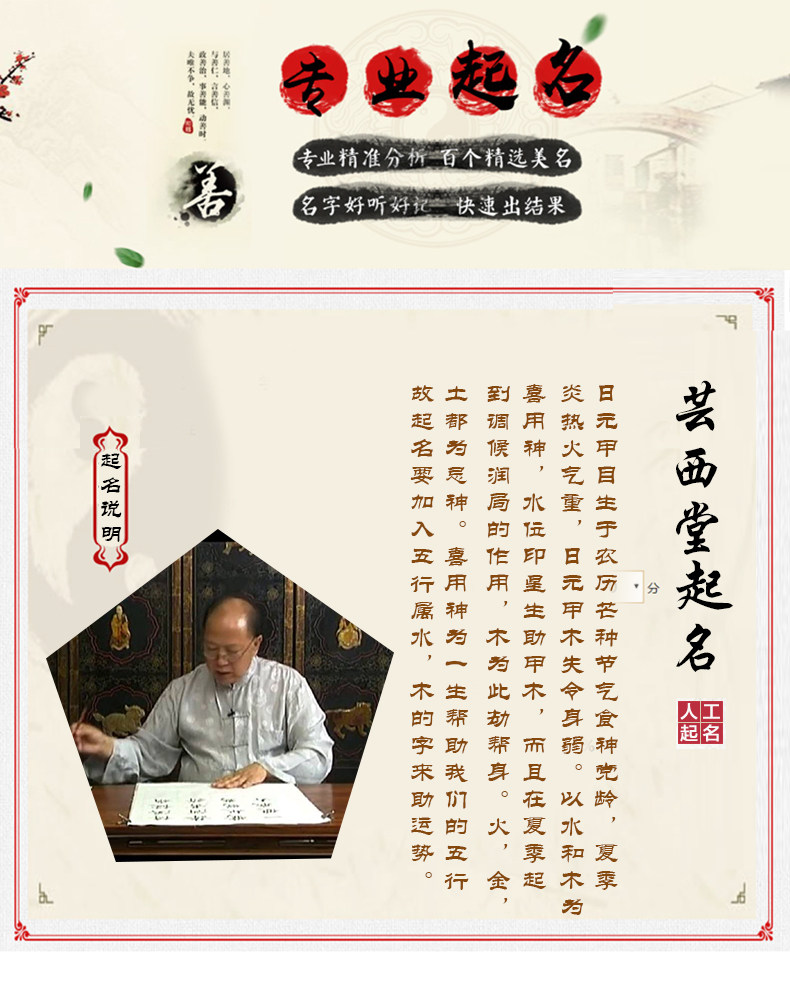 专业起名
专业精准分析 百个精选美名
名字好听好记 快速出结果
居善地、心善渊、
与善仁、言善信、
政善治、事善能、动善时、
夫唯不争、故无忧
善
芸西堂起名
人工
起名
分
日元甲目生于农历芒种节气食神党龄，夏季
炎热火气重，日元甲木失令身弱。以水和木为
喜用神，水位印星生助甲木，而且在夏季起
到调候润局的作用，木为此劫帮身。火，金，
土都为忌神。喜用神为一生帮助我们的五行
故起名要加入五行属水，木的字来助运势。
起名说明